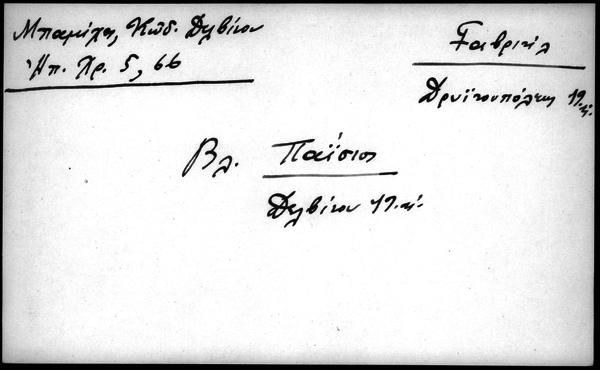 Μπαμίχας, Κώδ. Δελβίνου
Ἠπ. Χρ. 5, 66
Γαβριὴλ
Δρυϊνουπόλεως 19. αἰ.
Βλ. Παΐσιος
Δελβίνου 19. αἰ.